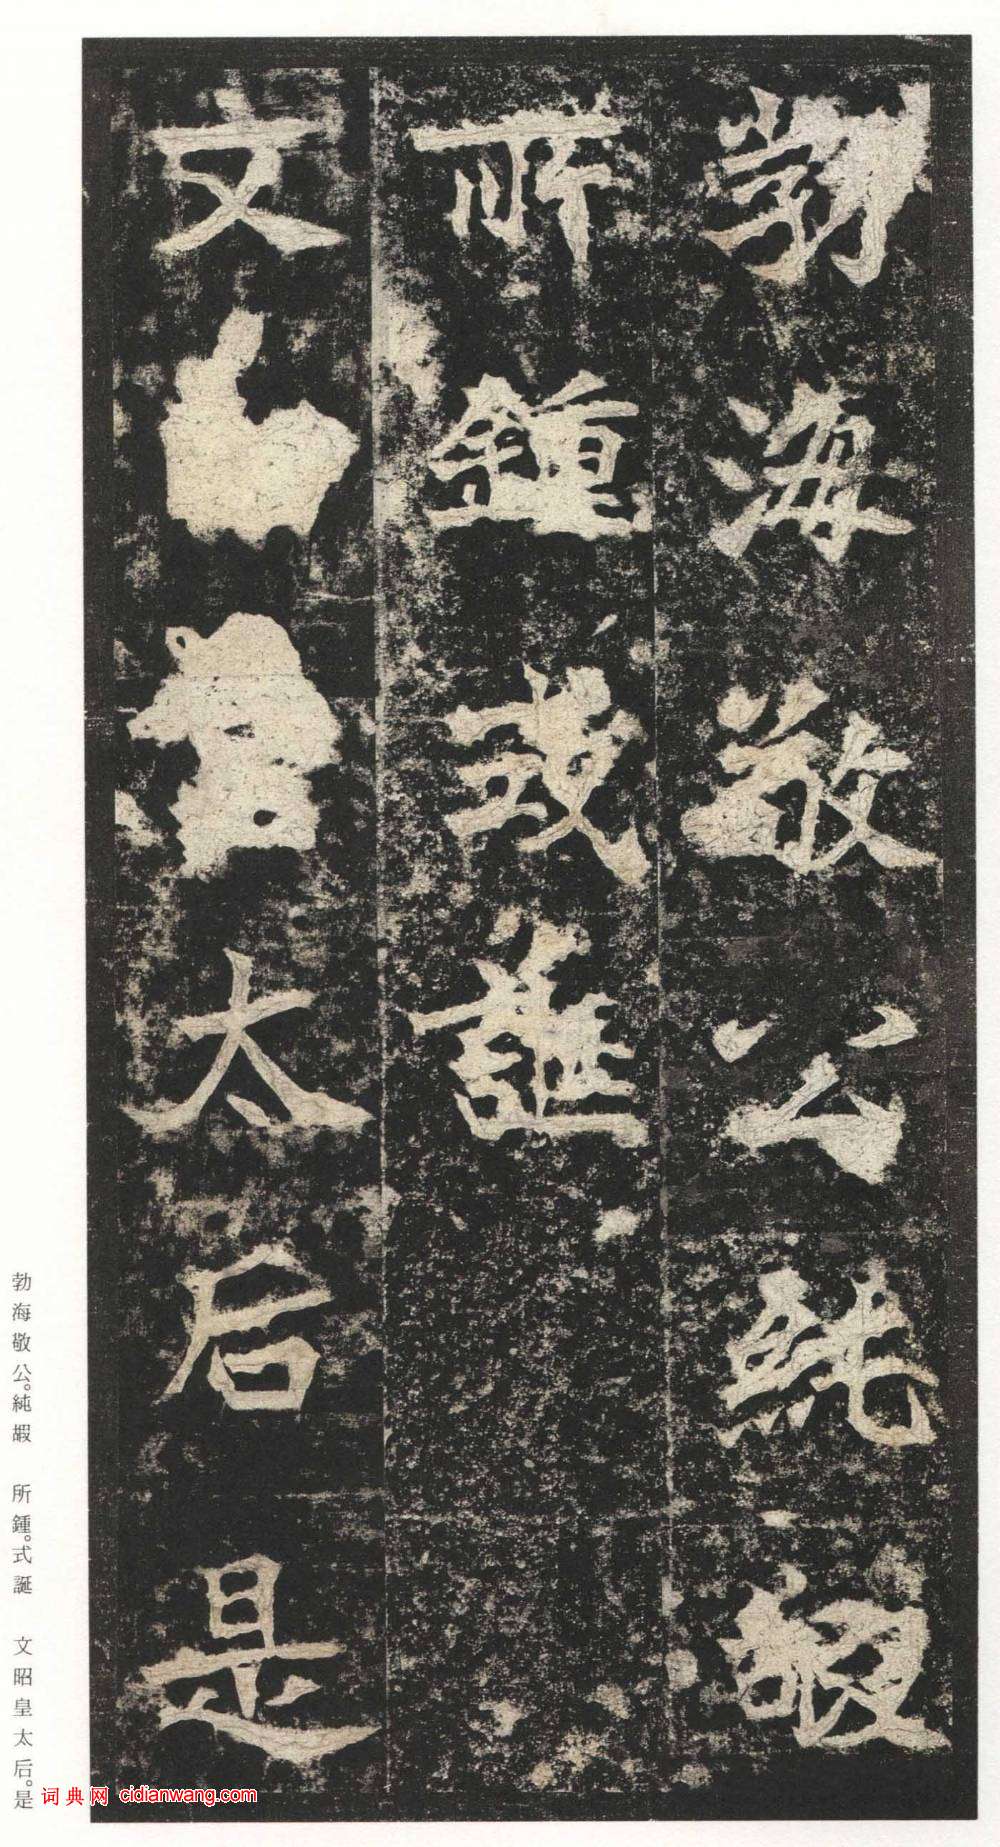 勃海敬公純嘏
所鍾式誕
文昭皇太后是
勃海敬公。純嘏 所鍾。式誕 文昭皇太后。是
词典网 cidianwang.com